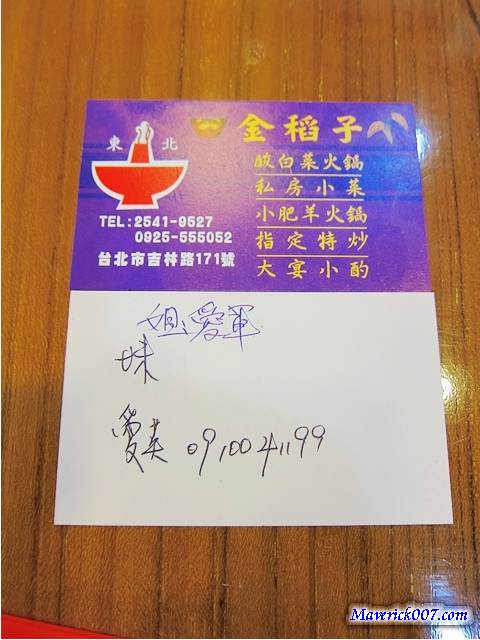 東北
金稻子
酸白菜火鍋
私房小菜
小肥羊火鍋
指定特炒
大宴小酌
TEL:2541-9527
0925-555052
台北市吉林路171號
姐愛軍
妹
愛美 0910041199
Maverick007.com